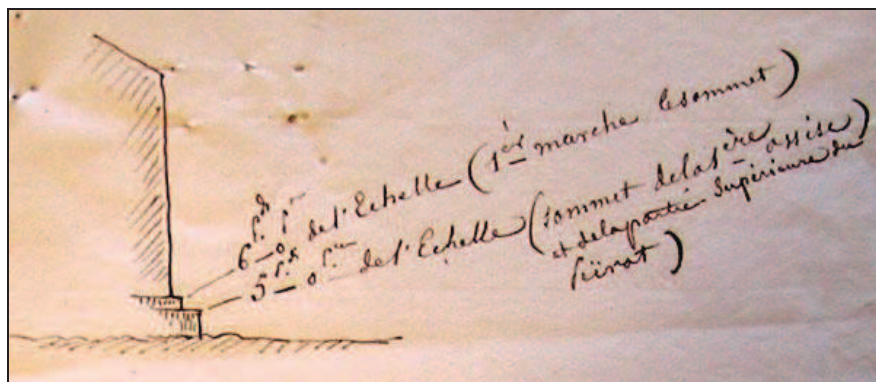 6 pds 0 pces de l'Echelle (1ère marche le sommet)
5 pds 0 pces de l'Echelle (sommet de la 1ère assise
et de la partie Supérieure du
)